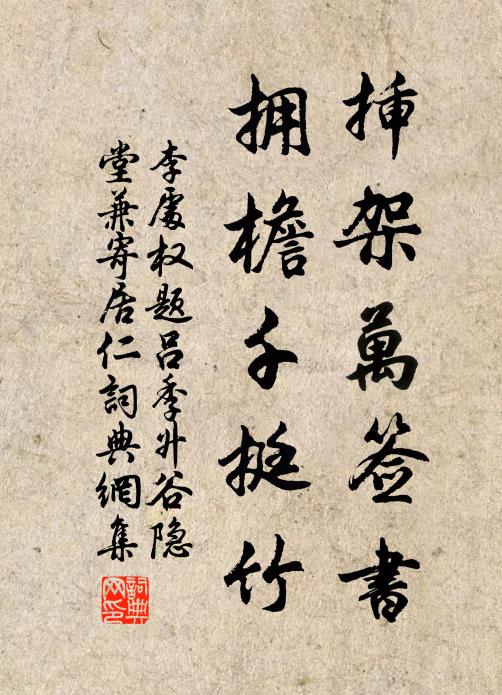 挿架萬签書
拥檐千挺竹
李處权题吕季升谷隐
堂兼寄居仁詞典網集
詞典网印